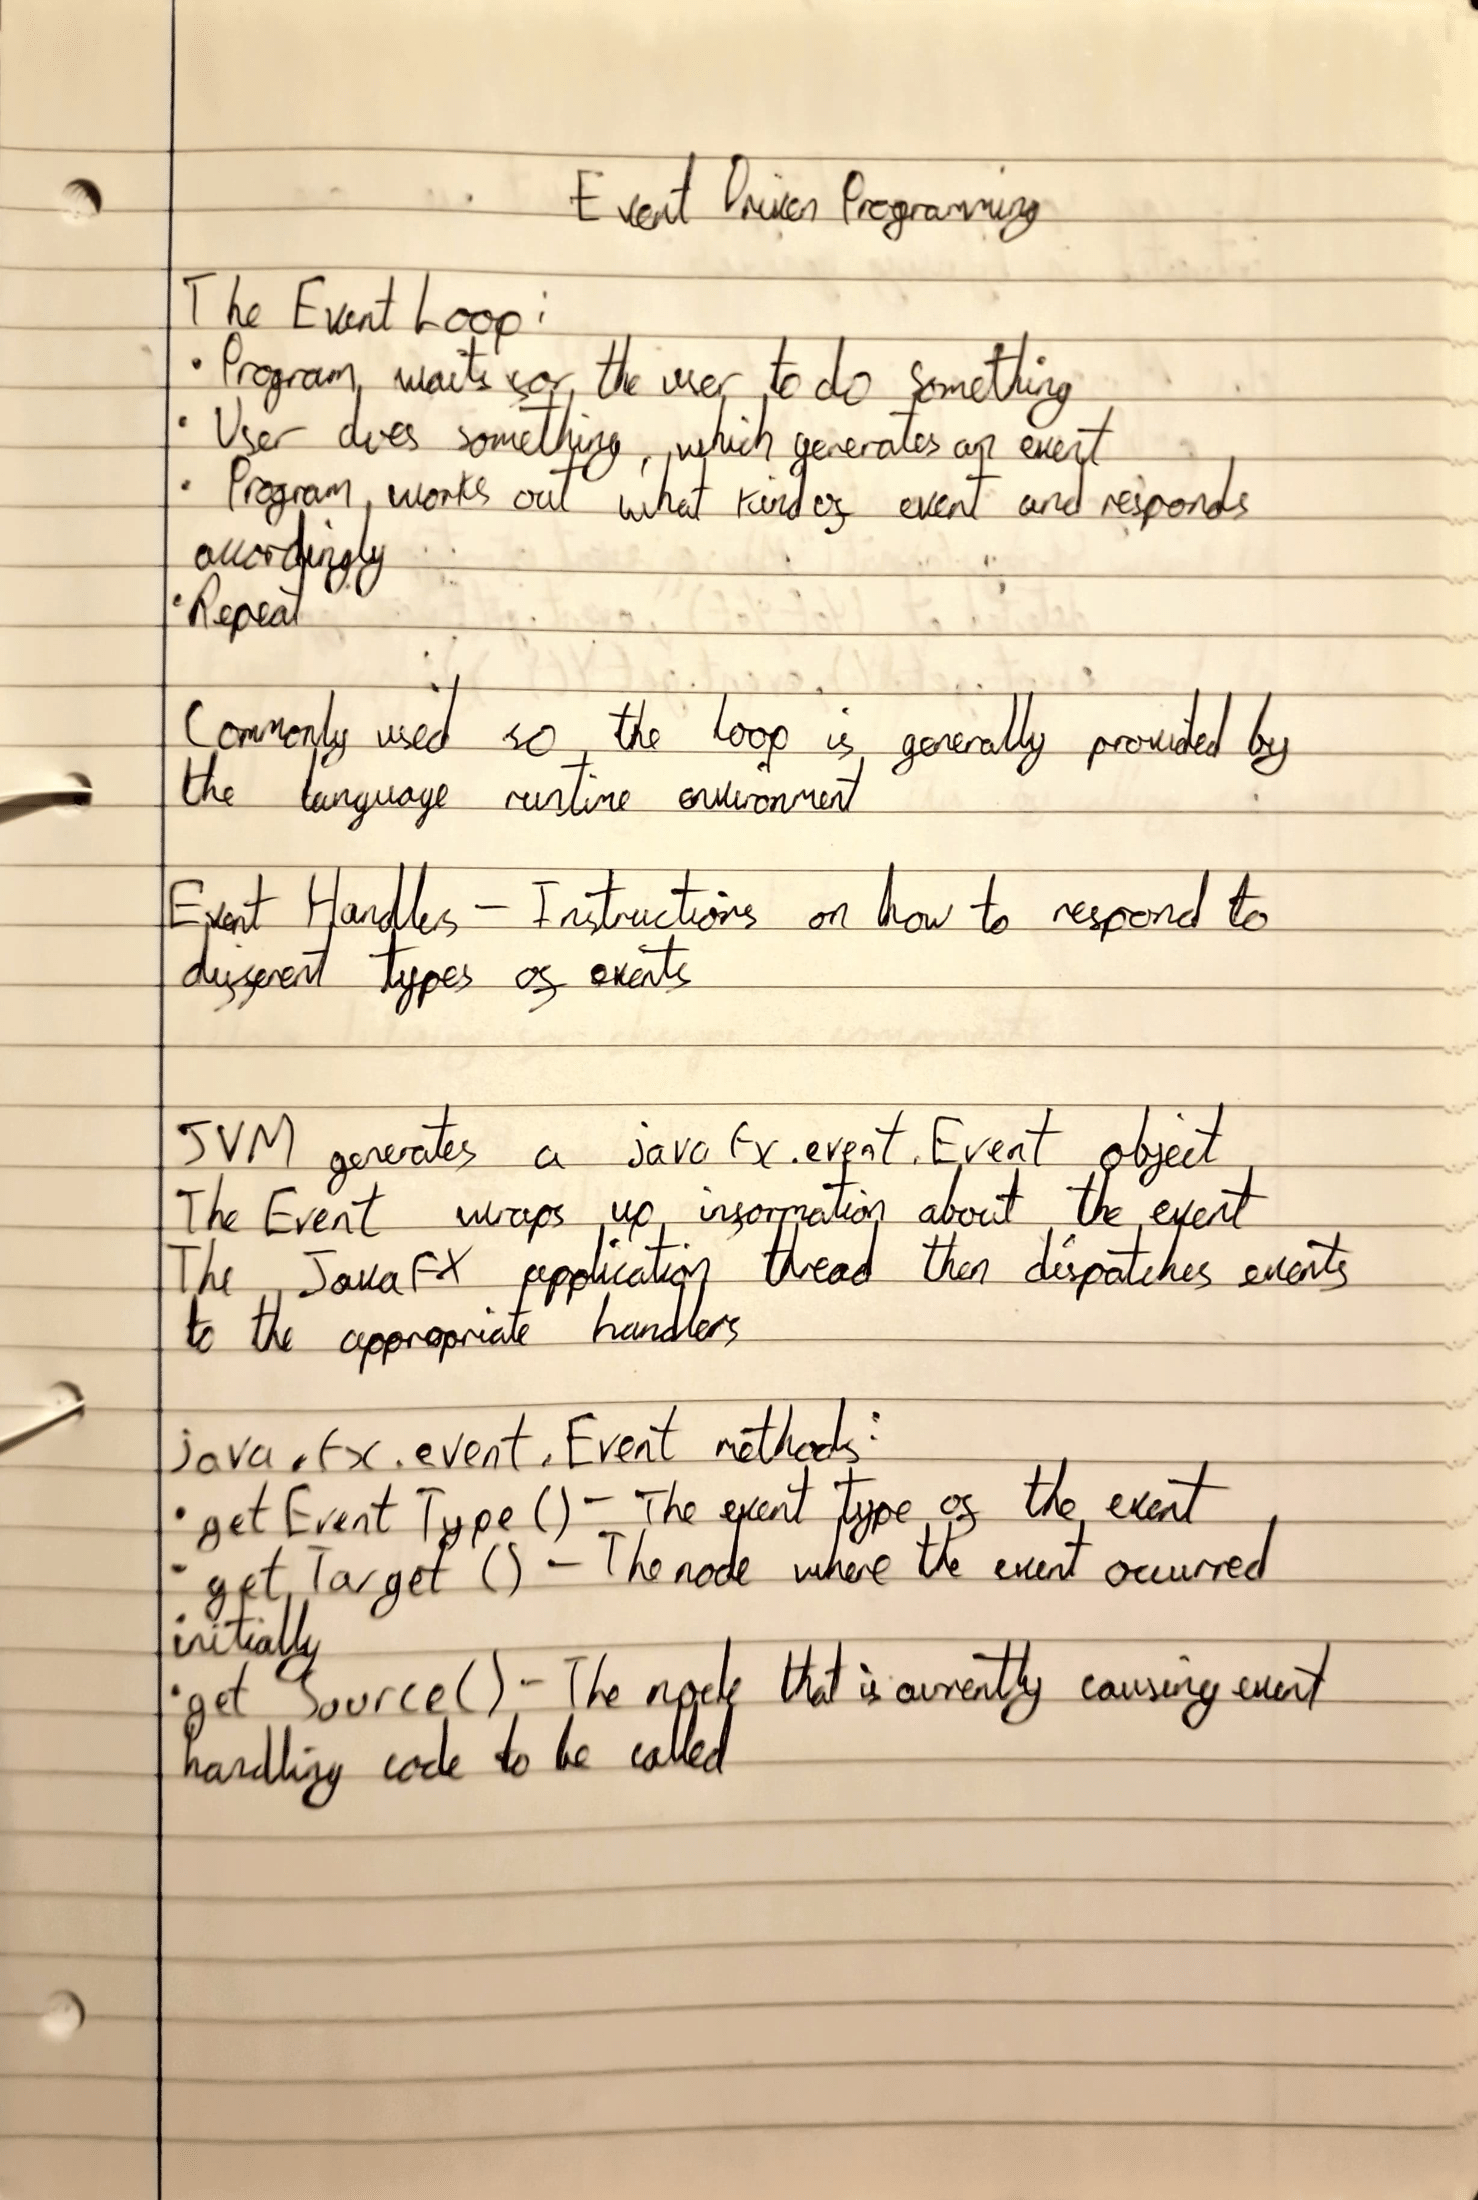 Event Driven Programming
The Event Loop:
• Program waits for the user to do something
• User does something, which generates an event
• Program works out what kind of event and responds
accordingly
• Repeat
Commonly used so the loop is generally provided by
the language runtime environment
Event Handles - Instructions on how to respond to
different types of events
JVM generates a javafx.event.Event object
The Event wraps up information about the event
The JavaFX application thread then dispatches events
to the appropriate handlers
java.fx.event.Event methods:
• getEventType() - The event type of the event
• getTarget() - The node where the event occurred
initially
• getSource() - The node that is currently causing event
handling code to be called